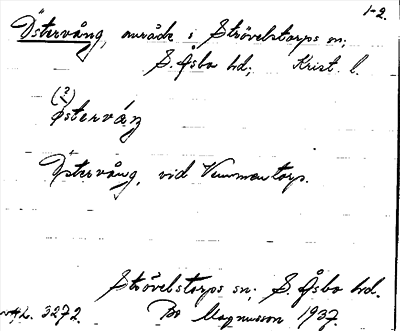 1-2.
Östervång, område i Strövelstorps sn;
S. Åsbo hd; Krist. l.
(?)
østervåŋ
Östervång, vid Vemmentorp.
Strövelstorps sn; S. Åsbo hd.
3272. Bo Magnusson 1937.